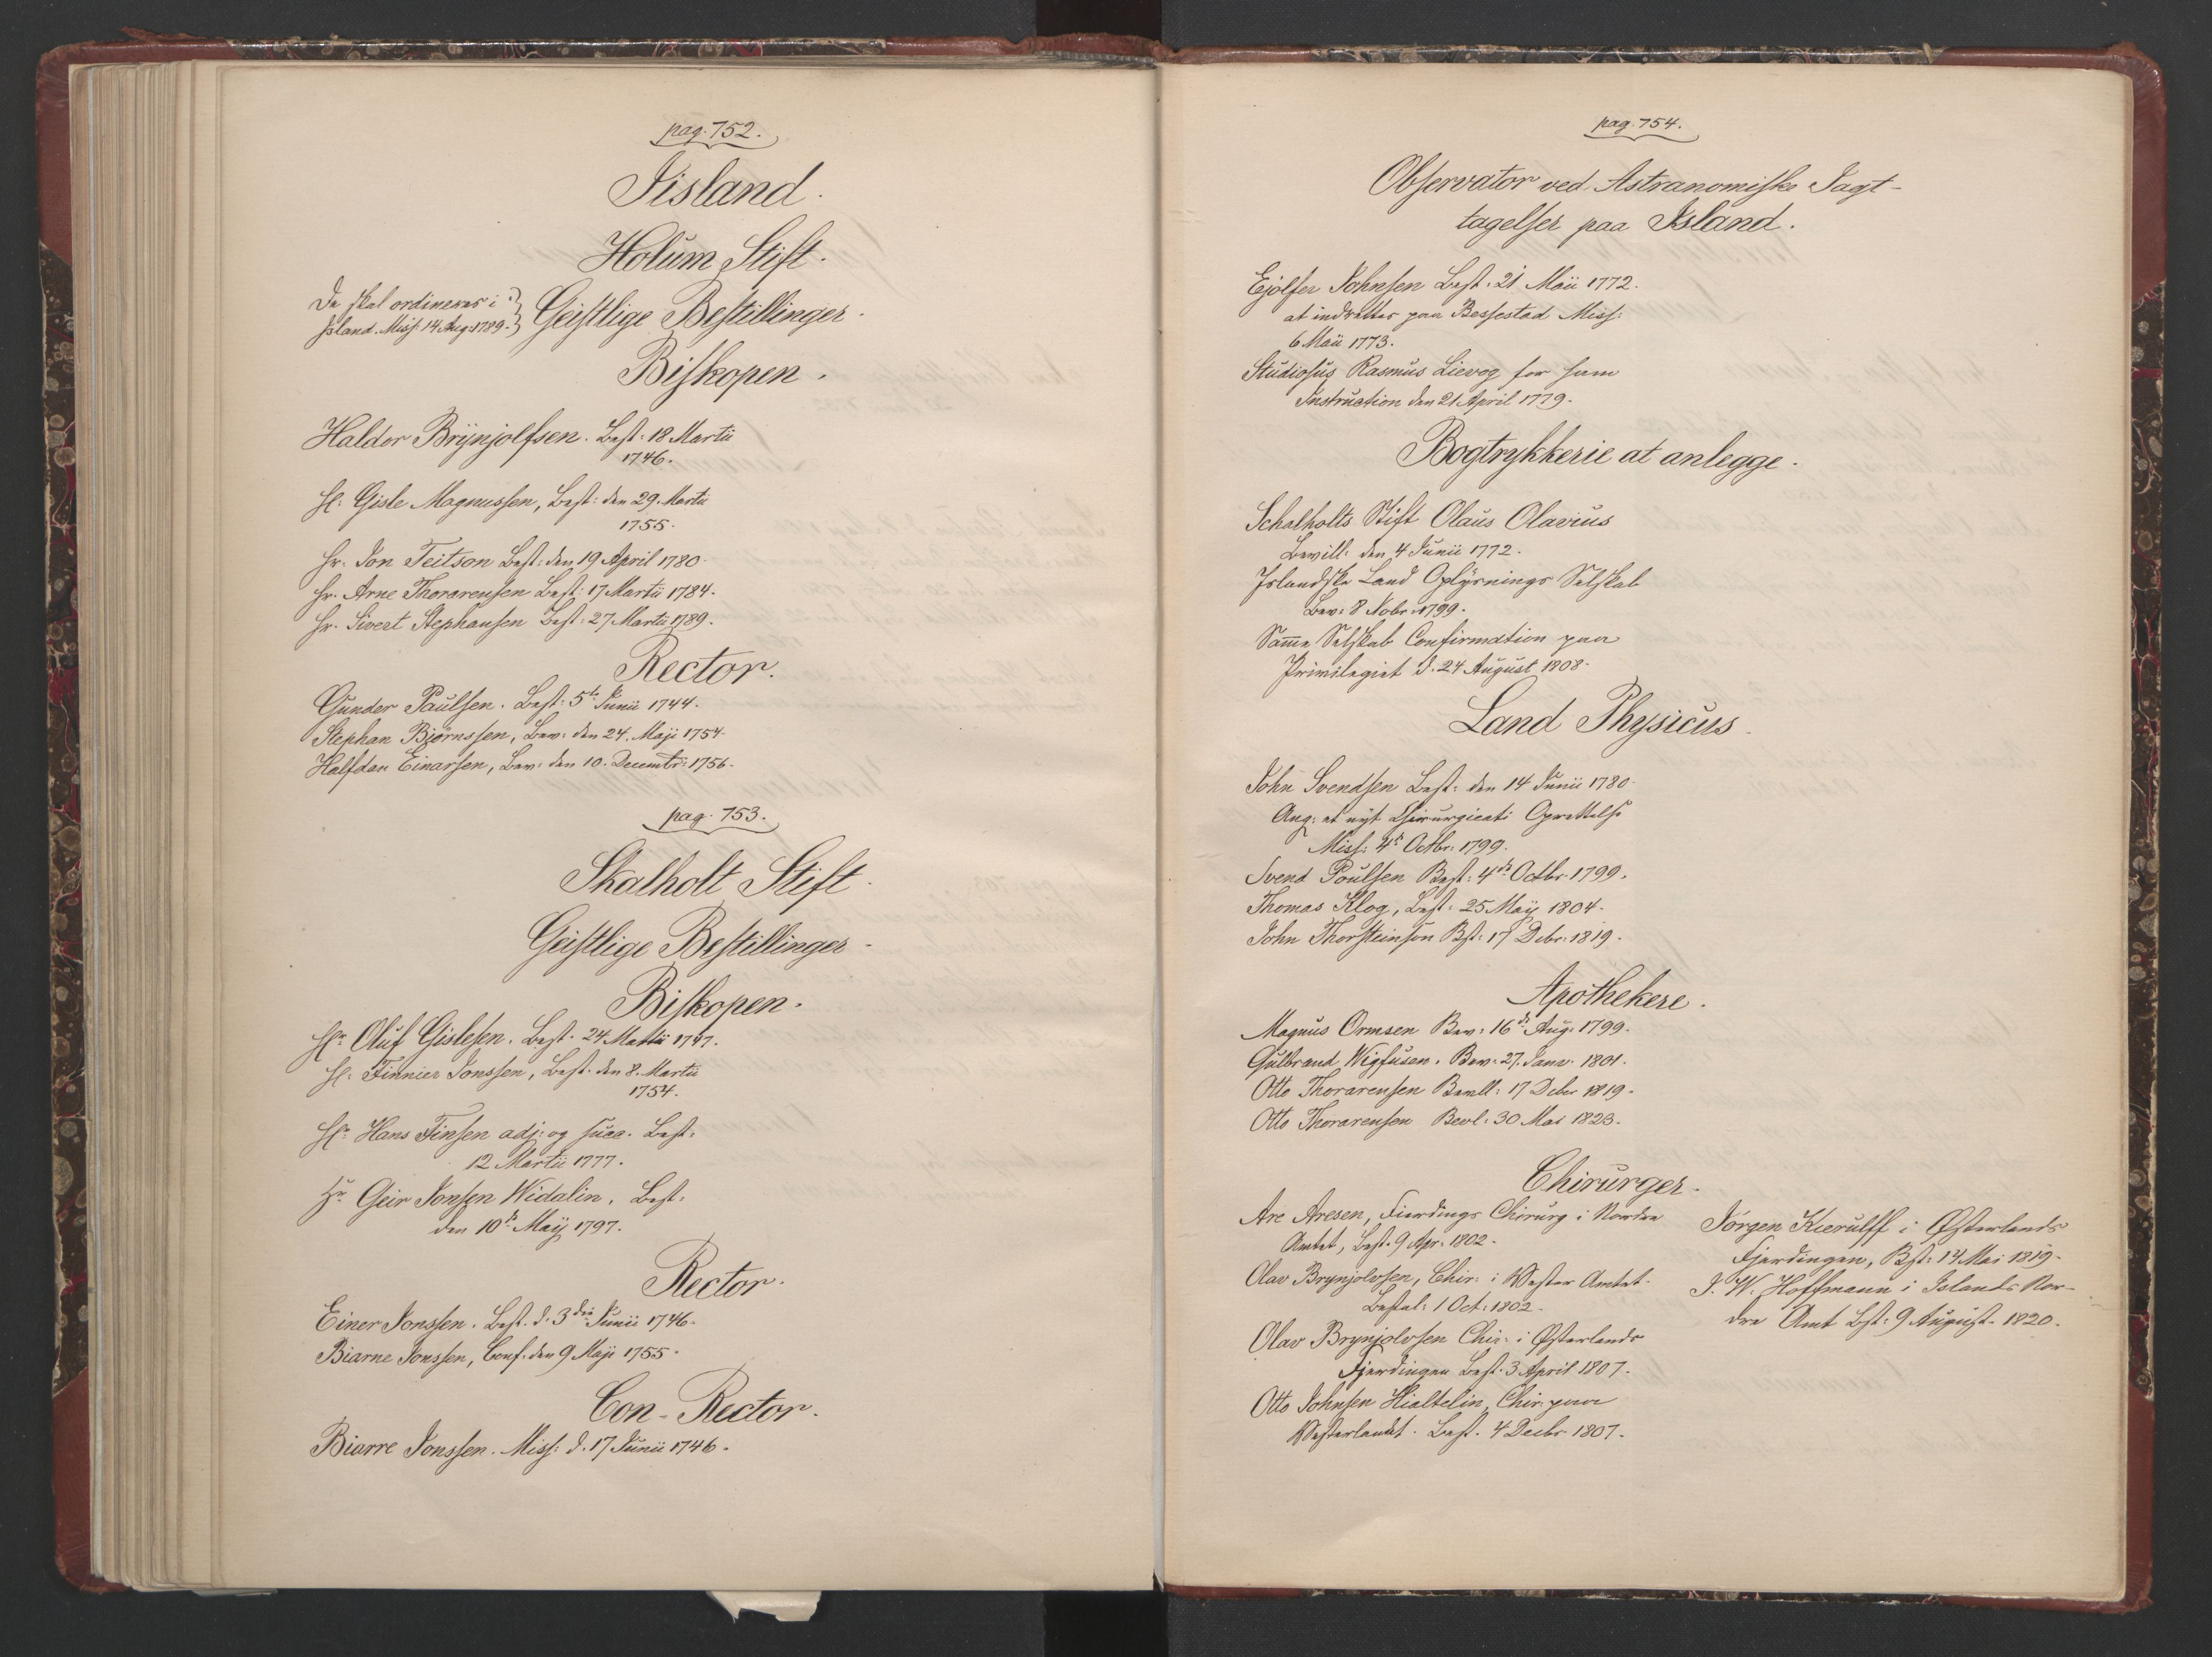 pag. 752.
Iisland.
Holum Stift.
De skal ordineres i
Island. Miss. 14 Aug: 1789.
Geistlige Bestillinger.
Biskopen.
Haldor Brÿnjolfsen. Best: 18 Martii
1746.
H: Gisle Magnussen, Best: den 29. Martii
1755.
Hr. Jon Teitson Best: den 19 April 1780.
Hr. Arne Thorarensen Best: 17 Martii 1784.
Hr. Sivert Stephansen Best: 27 Martii 1789.
Rector.
Gunder Paulsen. Best: 5te Junii 1744.
Stephan Biörnssen, Bew: den 24. Maji 1754.
Halfdan Einarsen, Bew: den 10. Decembr: 1756.
pag. 753.
Skalholt Stift.
Geistlige Bestillinger.
Biskopen.
Hr. Oluf Gislesen. Best. 24 Martii 1747.
H: Finnier Jonssen, Best. den 8. Martii
1754.
Hr. Hans Finsen adj: og succ. Best:
12 Martii 1777.
Hr. Geir Jonsen Widalin. Best:
den 10de Maÿ 1797.
Rector.
Einer Jonssen. Best. d. 3die Junii 1746.
Biarne Jonssen, Conf. den 9 Maji 1755.
Con-Rector.
Biarre Jonssen. Miss: d. 17 Junii 1746.
pag. 754.
Observator ved Astranomiske Jagt-
tagelser paa Island.
Ejolfer Johnsen Best. 21 Maii 1772.
at indrettes paa Bessestad Miss:
6 Maii 1773.
Studiosus Rasmus Lievog for ham
Instruction den 21 April 1779.
Bogtrykkerie at anlegge.
Schalholts Stift Olaus Olavius
Bewill: den 4 Junii 1772.
Islandske Land Oplÿsnings Selskab
Bev: 8 Nobr: 1799.
Samme Selskab Confirmation paa
Privilegiet d. 24 August 1808.
Land Physicus.
John Svendsen Best: den 14 Junii 1780.
Ang: et nyt Chirurgicati Oprettelse
Miss: 4de Octbr: 1799.
Svend Poulsen Best: 4de Octbr. 1799.
Thomas Klog, Best: 25 Maÿ 1804.
John Thorsteinson Bst: 17 Debr: 1819.
Apothekere.
Magnus Ormsen Bev: 16de Aug: 1799.
Gulbrand Wigfusen. Bev: 27. Janv. 1801.
Otto Thorarensen Bewll: 17 Debr 1819.
Otto Thorarensen Bevl: 30 Mai 1823.
Chirurger.
Are Aresen, Fierdings Chirurg i Nordre
Amtet, Best. 9 Apr. 1802.
Olav Brynjolvsen, Chir: i Wester Amtet.
Bestal: 1 Oct: 1802.
Olav Brynjolvsen Chir: i Østerlands
Fjerdingen Best. 3 April 1807.
Otto Johnsen Hialtelin, Chir: paa
Westerlandet. Best. 4 Decbr 1807.
Jörgen Kierulff i Østerlands
Fjerdingen, Bst: 14 Mai 1819.
J. W. Hoffmann i Islands Nor-
dre Amt Bst: 9 August. 1820.